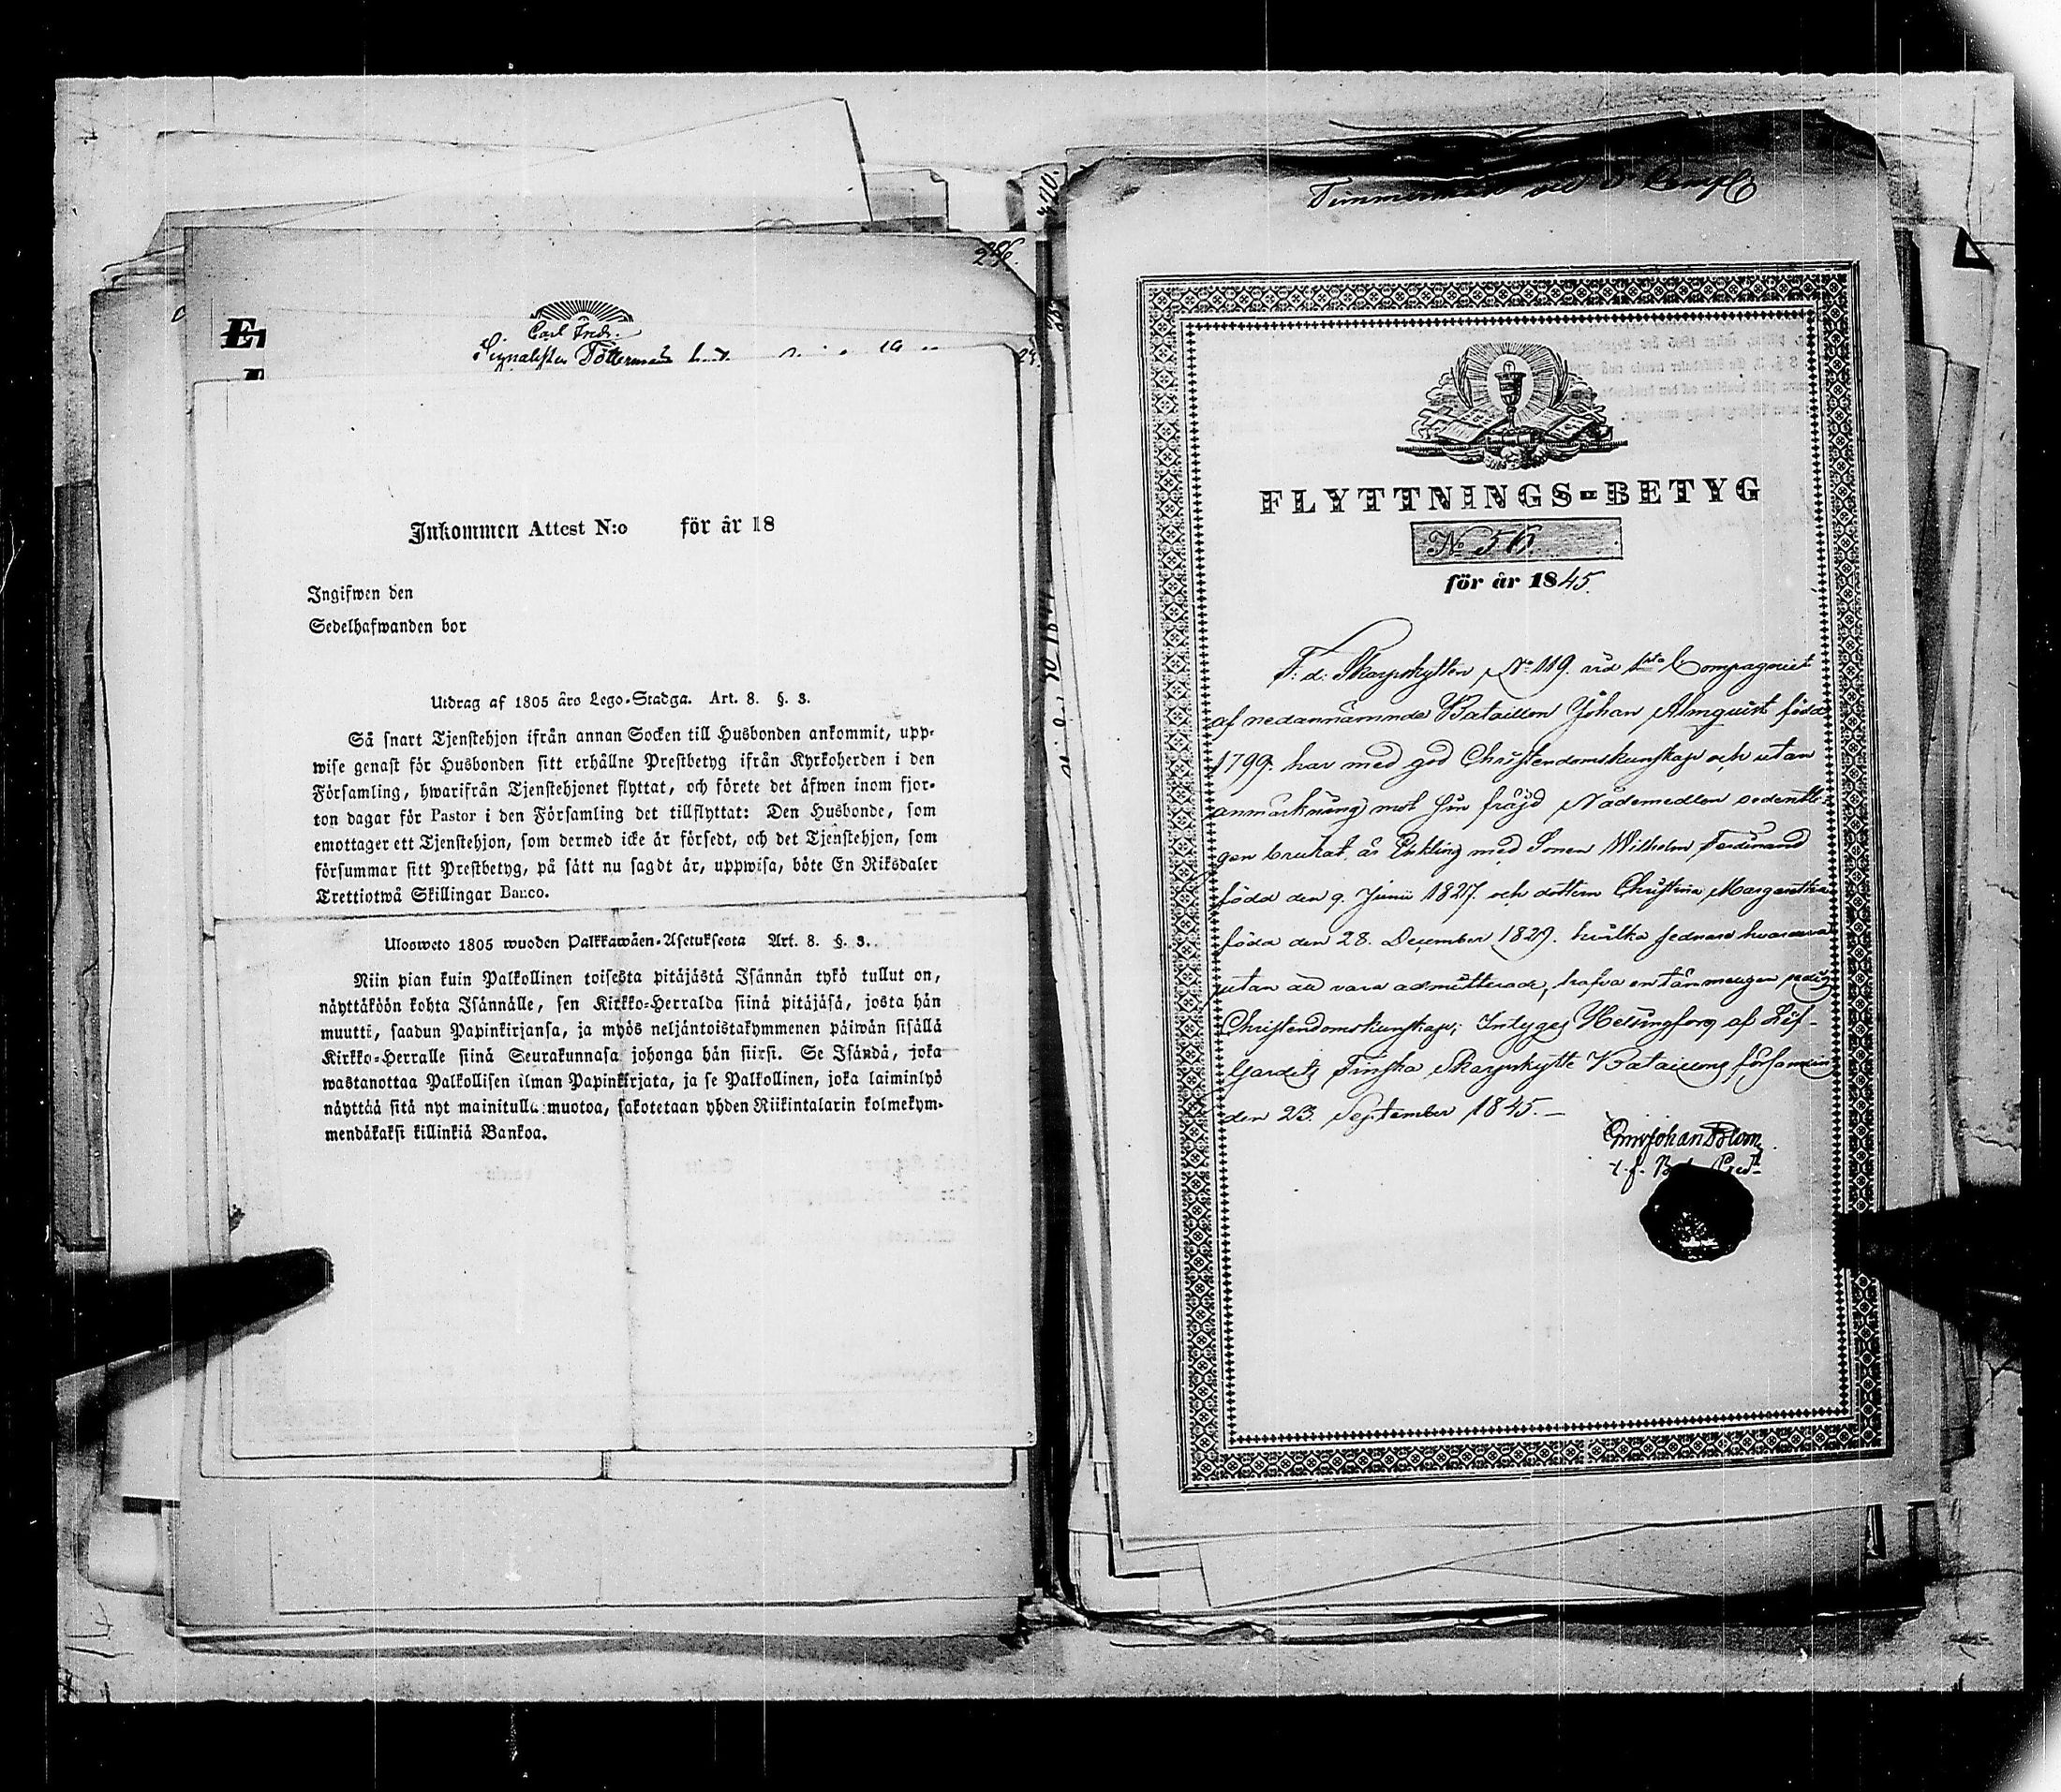 Carl Fredr.
Signalisten Tötterman
Inkommen Attest N:o för år 18
Ingifwen den
Sedelhafwanden bor
Utdrag af 1805 års Lego-Stadga. Art. 8. §. 3.
Så snart Tjenstehjon ifrån annan Socken till Husbonden ankommit, upp-
wise genast för Husbonden sitt erhållne Prestbetyg ifrån Kyrkoherden i den
Församling, hwarifrån Tjenstehjonet flyttat, och förete det äfwen inom fjor-
ton dagar för Pastor i den Församling det tillflyttat: Den Husbonde, som
emottager ett Tjenstehjon, som dermed icke är försedt, och det Tjenstehjon, som
försummar sitt Prestbetyg, på sätt nu sagdt är, uppwisa, böte En Riksdaler
Trettiotwå Skillingar Banco.
Ulosweto 1805 wuoden Palkkawäen-Asetuksesta Art. 8. §. 3.
Niin pian kuin Palkollinen toisesta pitäjästä Isännän tykö tullut on,
näyttäköön kohta Isännälle, sen Kirkko-Herralda siinä pitäjäsä, josta hän
muutti, saadun Papinkirjansa, ja myös neljäntoistakymmenen päiwän sisällä
Kirkko-Herralle siinä Seurakunnasa johonga hän siirsi. Se Isändä, joka
wastanottaa Palkollisen ilman Papinkirjata, ja se Palkollinen, joka laiminlyö
näyttää sitä nyt mainitulla muotoa, sakotetaan yhden Riikintalarin kolmekym-
mendäkaksi killinkiä Bankoa.
Timmerman
FLYTTNINGS-BETYG
No 56.
för år 1845.
F: d: Skarpskytten No 119. vid 1sta Compagniet
af nedannämnde Bataillon Johan Almquist född
1799. har med god Christendomskunskap och utan
anmärkning mot sin fräjd Nådemedlen ordentli-
gen brukat, är Enkling med Sonen Wilhelm Ferdinand
född den 9. Junii 1827. och dottern Christina Margaretha
född den 28. December 1829. hvilka sednare hvardera
utan att vara admitterade, hafva en tämmeligen redig
Christendomskunskap; Intygas Helsingfors af Lif-
Gardets Finska Skarpskytte Bataillons församling
den 23. September 1845.
Johan Blom
t. f.